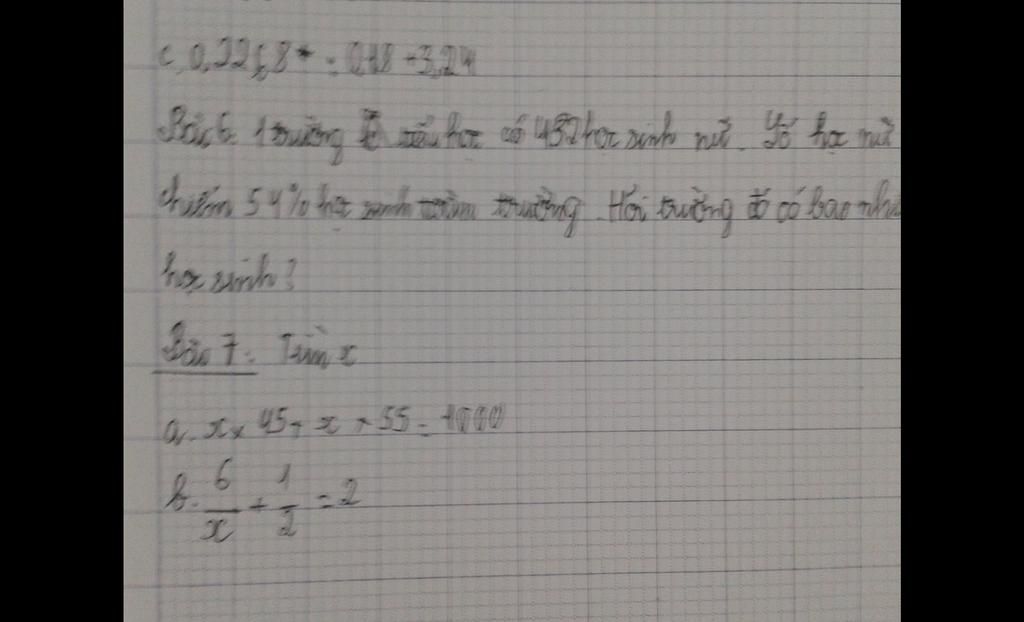 Bài 6. 1 trường tiểu học có 432 học sinh nữ. Số học nữ
chiếm 54% học sinh toàn trường. Hỏi trường đó có bao
học sinh?
Bài 7: Tìm x
a. x × 45 + x × 55 = 1000
b. 6/x + 1/2 = 2